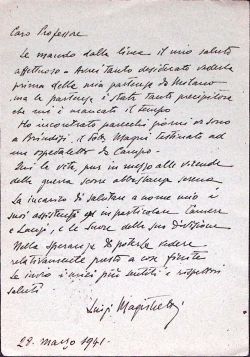 Caro Professore
Le mando dalla linea il mio saluto
affettuoso - Avrei tanto desiderato vederla
prima della mia partenza da Milano
ma la partenza è stata tanto precipitosa
che mi è mancato il tempo
Ho incontrato parecchi giorni or sono
a Brindisi, il Dott. Magni destinato ad
un ospedaletto da Campo -
Qui la vita, pur in mezzo alle vicende
della guerra scorre abbastanza serena
La incarico di salutare a nome mio i
suoi assistenti in particolare
e Lanzi, e le Suore della sua divisione
Nella speranza di poterla vedere
relativamente presto a cose finite
Le invio i miei più sentiti e rispettosi
saluti
Luigi
29. marzo 1941.